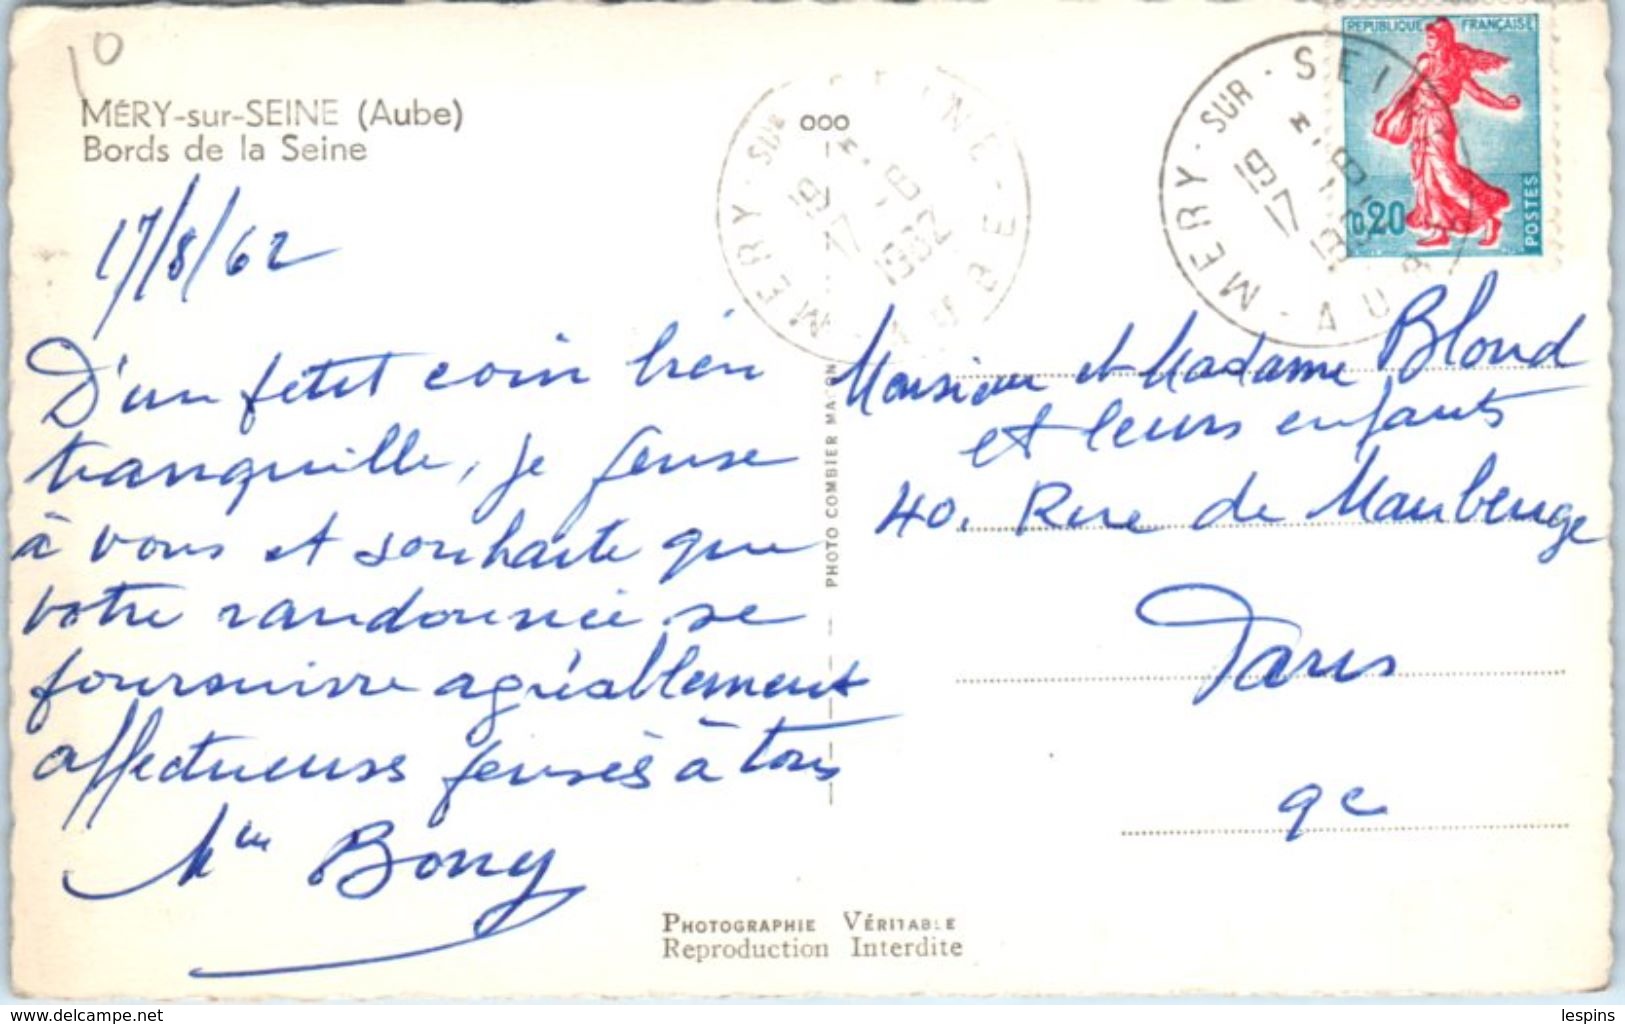 10
MÉRY-sur-SEINE (Aube)
Bords de la Seine
17/8/62
D'un petit coin bien
tranquille, je pense
à vous et souhaite que
votre randonnée se
poursuivre agréablement
affectueuses pensées à tous
Mme Bony
ooo
MERY-SUR-SEINE
19 H
17 - 8
1962
AUBE
MERY-SUR-SEINE
19 H
17 - 8
AUBE
REPUBLIQUE FRANÇAISE
0,20
POSTES
PHOTO COMBIER MACON
Monsieur et Madame Blond
et leurs enfants
40. Rue de Maubeuge
Paris
9e
PHOTOGRAPHIE VÉRITABLE
Reproduction Interdite
delcampe.net
lespins